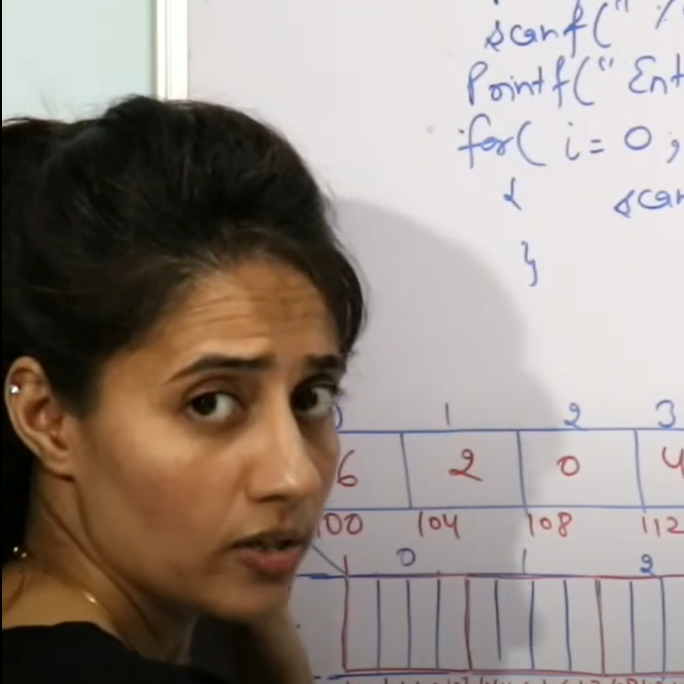 scanf("
Printf("Ent
for( i= 0 ;
{ scan
}
1 2 3
6 2 0 4
100 104 108 112
0 1 2